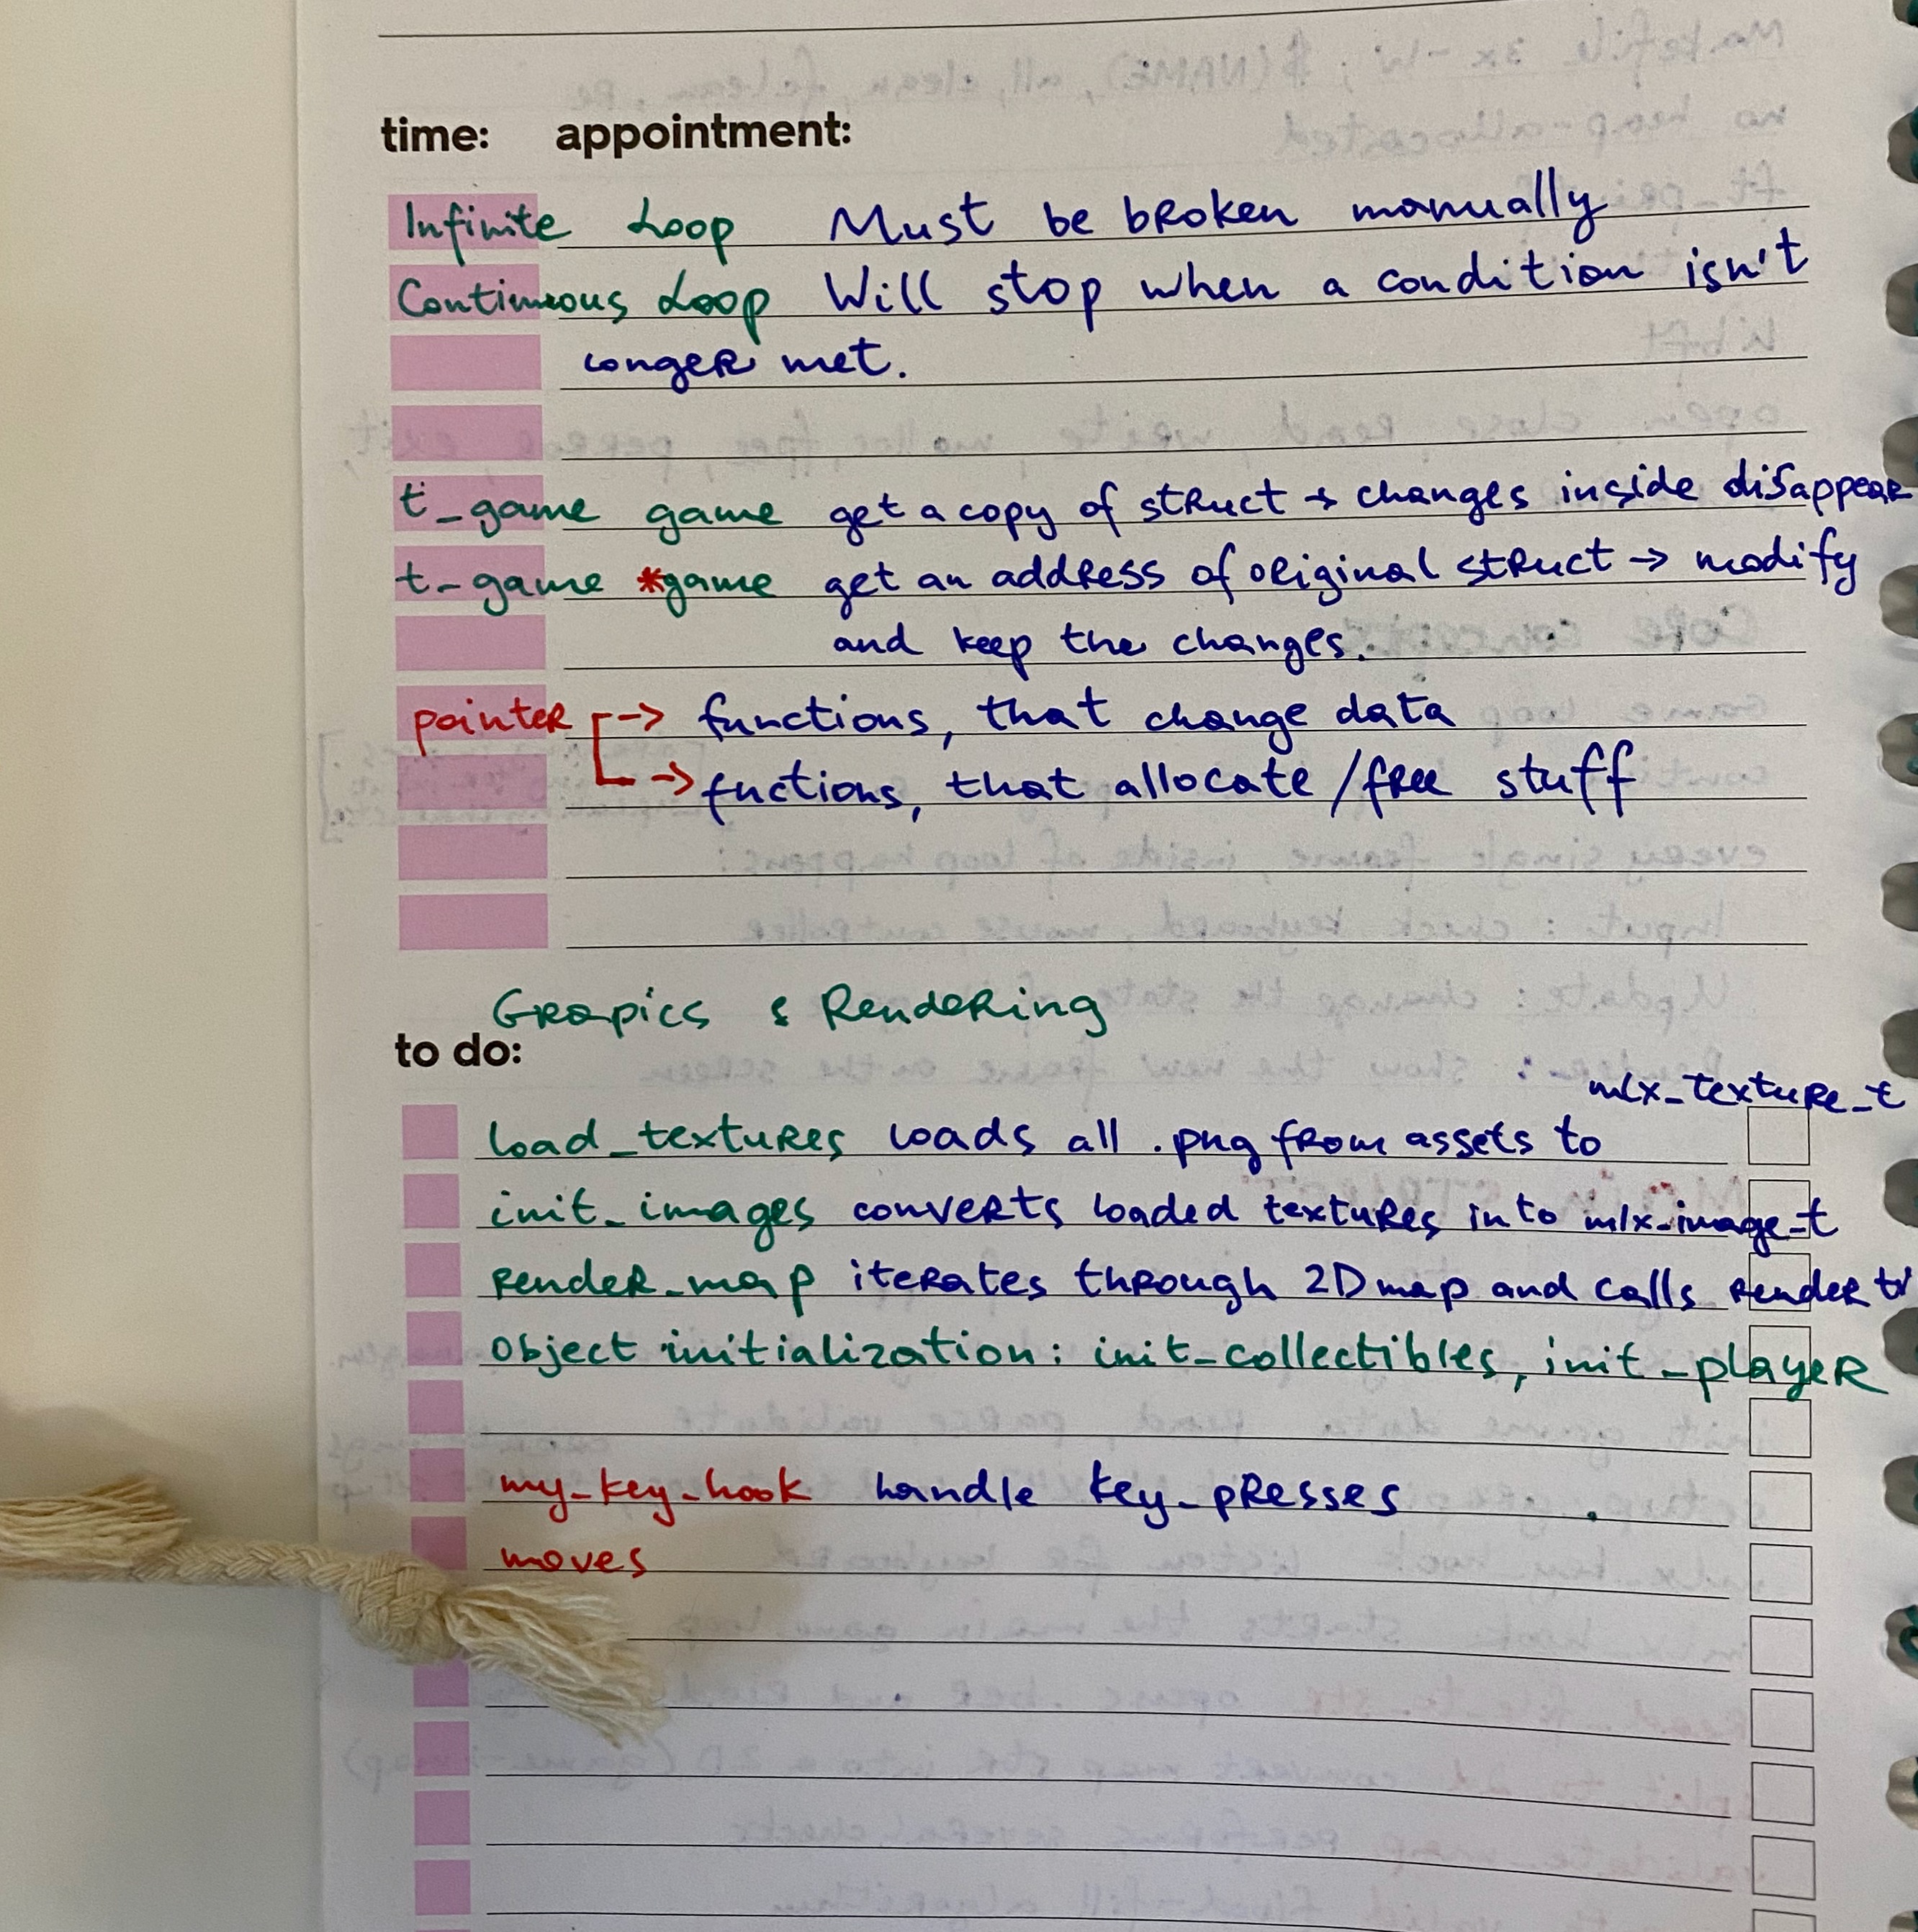 time: appointment:
Infinite Loop Must be broken manually
Continuous Loop Will stop when a condition isn't
longer met.
t_game game get a copy of struct → changes inside disappear
t_game *game get an address of original struct → modify
and keep the changes.
pointer → functions, that change data
→ fuctions, that allocate / free stuff
Grapics & Rendering
to do:
mlx_texture_t
load_textures loads all .png from assets to
init_images converts loaded textures into mlx_image_t
render_map iterates through 2D map and calls render
object initialization: init_collectibles, init_player
my_key_hook handle key_presses
moves